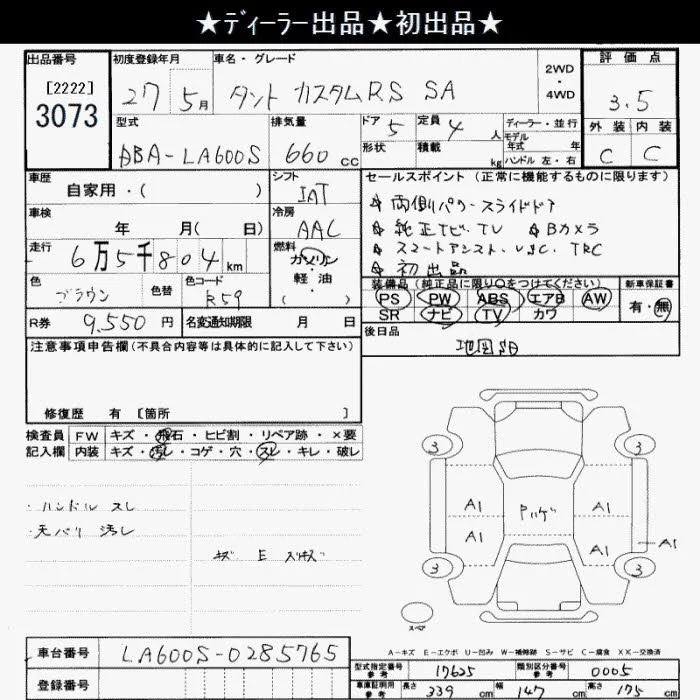 ★ディーラー出品★初出品★
出品番号 初度登録年月 車名・グレード 2WD・4WD 評価点
[2222] 3073 27 5月 タント カスタムRS SA 3.5
型式 排気量 ドア 5 定員 4人 ディーラー・並行 外装 内装
モデル年式 年
DBA-LA600S 660cc 形状 積載 kg ハンドル 左・右 C C
車歴 シフト セールスポイント (正常に機能するものに限ります)
自家用・( ) IAT 両側パワースライドドア
車検 冷房 純正ナビ.TV Bカメラ
年 月( 日) AAC スマートアシスト.VSC.TRC
走行 燃料 初出品
6万5千804km ガソリン・軽油・( )
装備品 (純正品に限り○をつけてください) 新車保証書
色 色替 色コード PS PW ABS エアB AW 有・無
ブラウン R59 SR ナビ TV カワ
R券 9,550円 名変通知期限 月 日 後日品
地図SD
注意事項申告欄(不具合内容等は具体的に記入して下さい)
修復歴 有 [箇所 ]
検査員 FW キズ・飛石・ヒビ割・リペア跡・×要
記入欄 内装 キズ・汚レ・コゲ・穴・スレ・キレ・破レ
・ハンドル スレ
・天バリ 汚レ
キズ E スリキズ
3 3
A1 Pハゲ A1
A1 A1 A1
3 3
スペア
A-キズ E-エクボ U-凹み W-補修跡 S-サビ C-腐食 XX-交換済
車台番号 LA600S-0285765
型式指定番号 参考 17625 類別区分番号 参考 0005
登録番号
車庫証明用 参考 長さ 339cm 幅 147cm 高さ 175cm